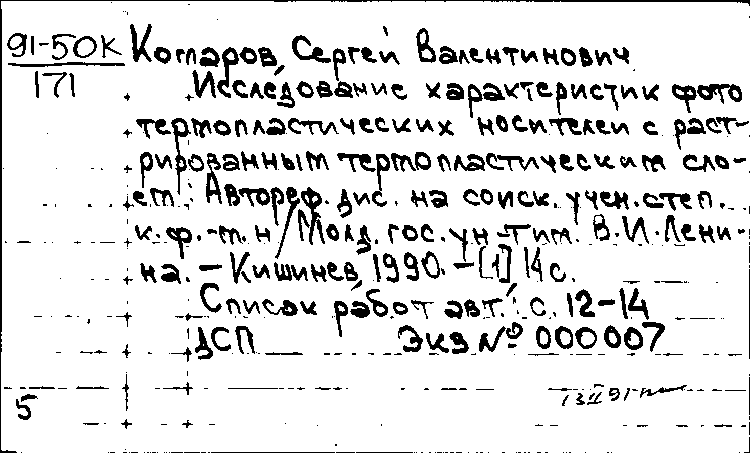 91-50К Котларов, Сергей Валентинович
171 Исследование характеристик фото
термопластических носителей с раст-
рированным термопластическим сло-
ем: Автореф. дис. на соиск. учен. степ.
к. ф.-м. н / Молд. гос. ун-т им. В. И. Лени-
на. – Кишинев, 1990. – [1] 14 с.
Список работ авт.: с. 12–14
ДСП Экз № 000007
5 13 II 91